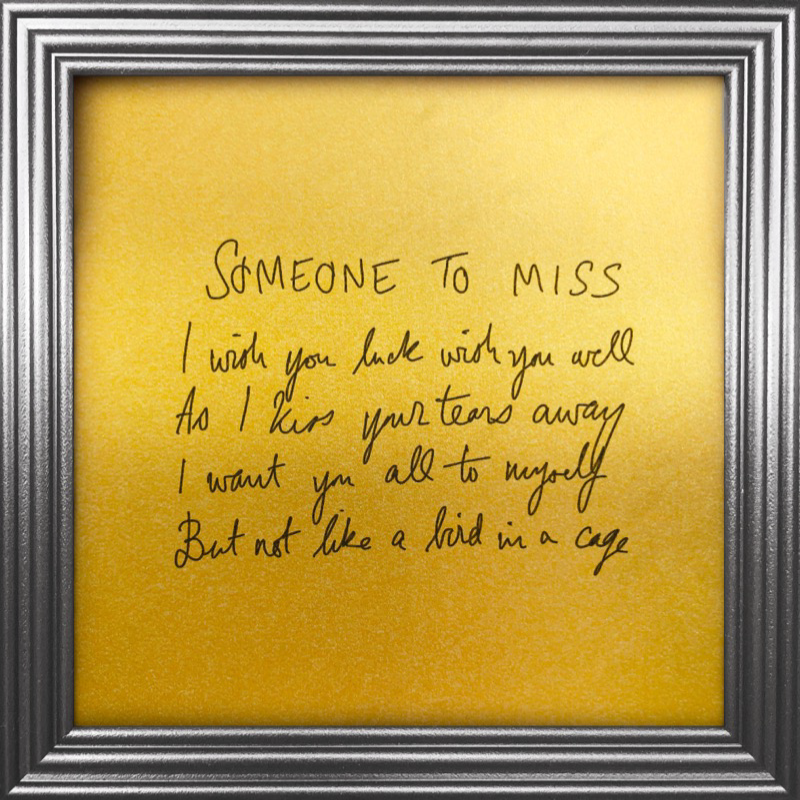 SOMEONE TO MISS
I wish you luck wish you well
As I kiss your tears away
I want you all to myself
But not like a bird in a cage